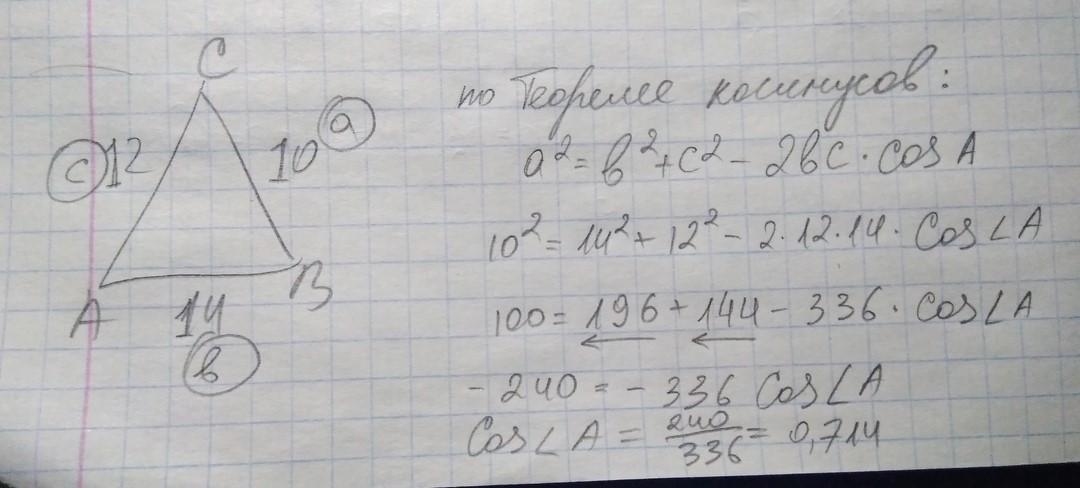 C
c 12
10 a
A
14
B
в
по Теореме косинусов:
a² = в² + c² - 2вc · cos A
10² = 14² + 12² - 2·12·14 · Cos∠A
100 = 196 + 144 - 336 · Cos∠A
- 240 = - 336 Cos∠A
Cos∠A = 240/336 = 0,714